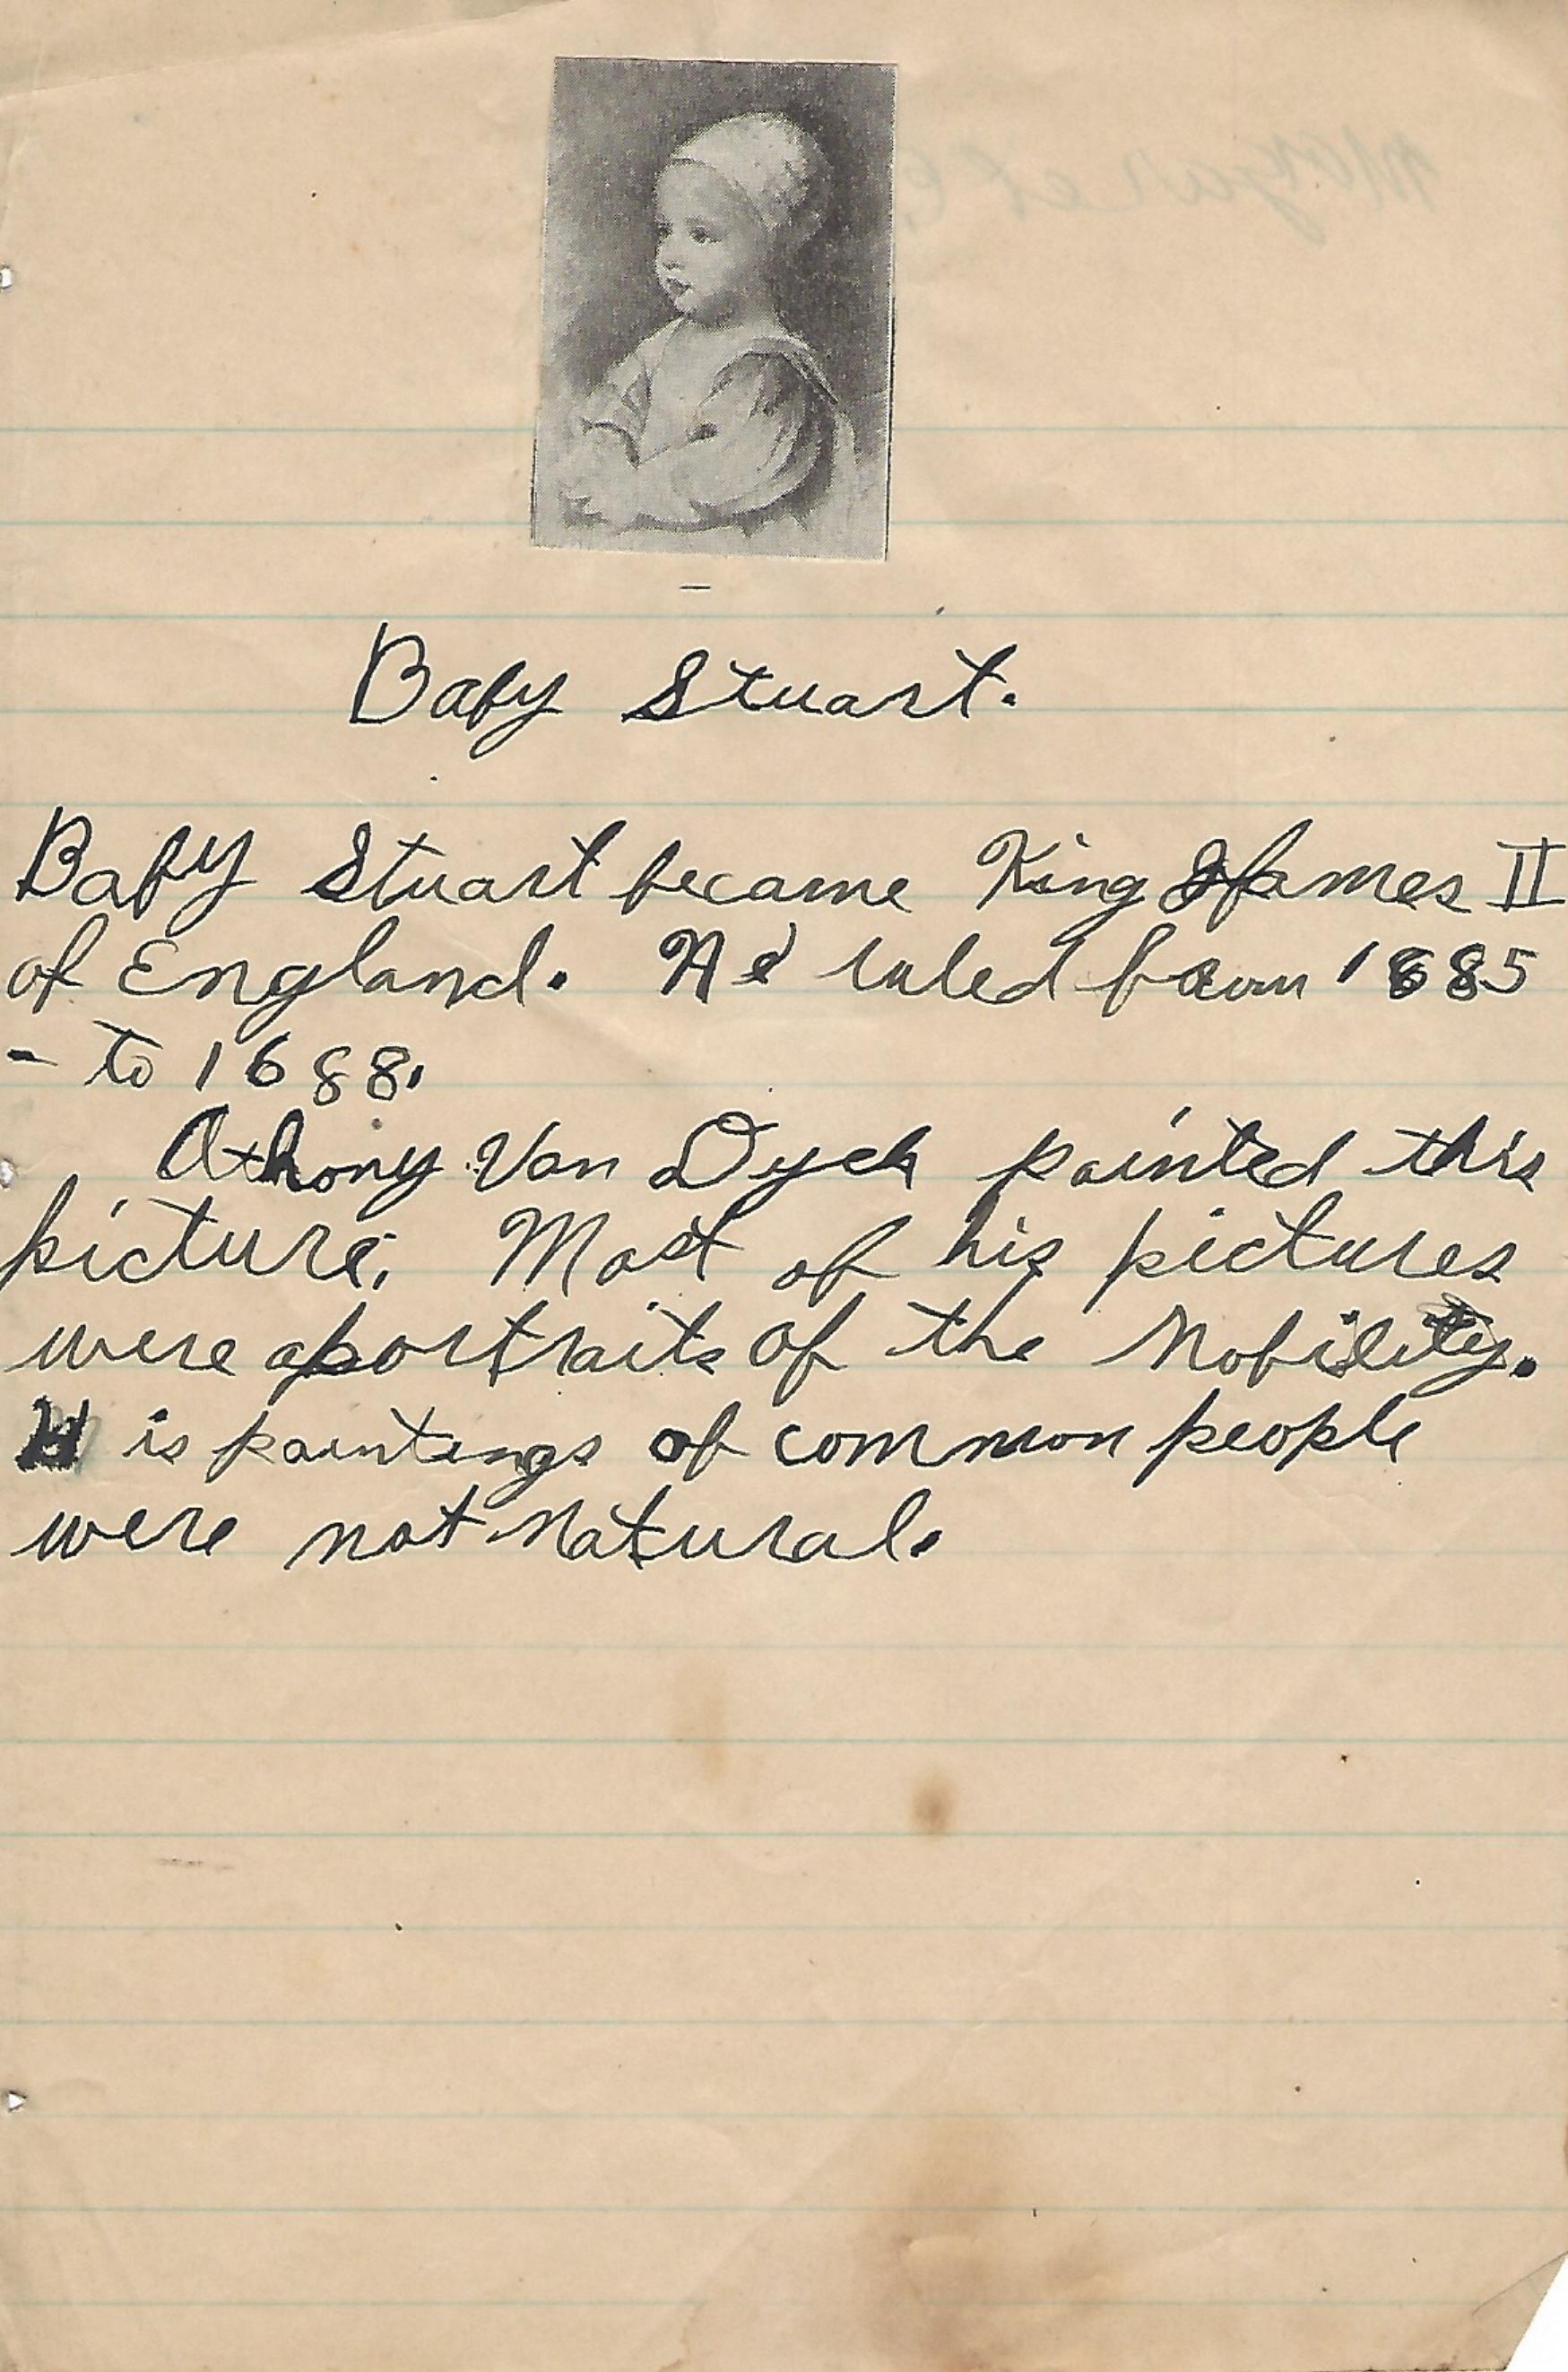 Baby Stuart.
Baby Stuart became King James II
of England. He ruled from 1685
- to 1688.
Athony Van Dyck painted this
picture. Most of his pictures
were portraits of the Nobility.
His paintings of common people
were not natural.